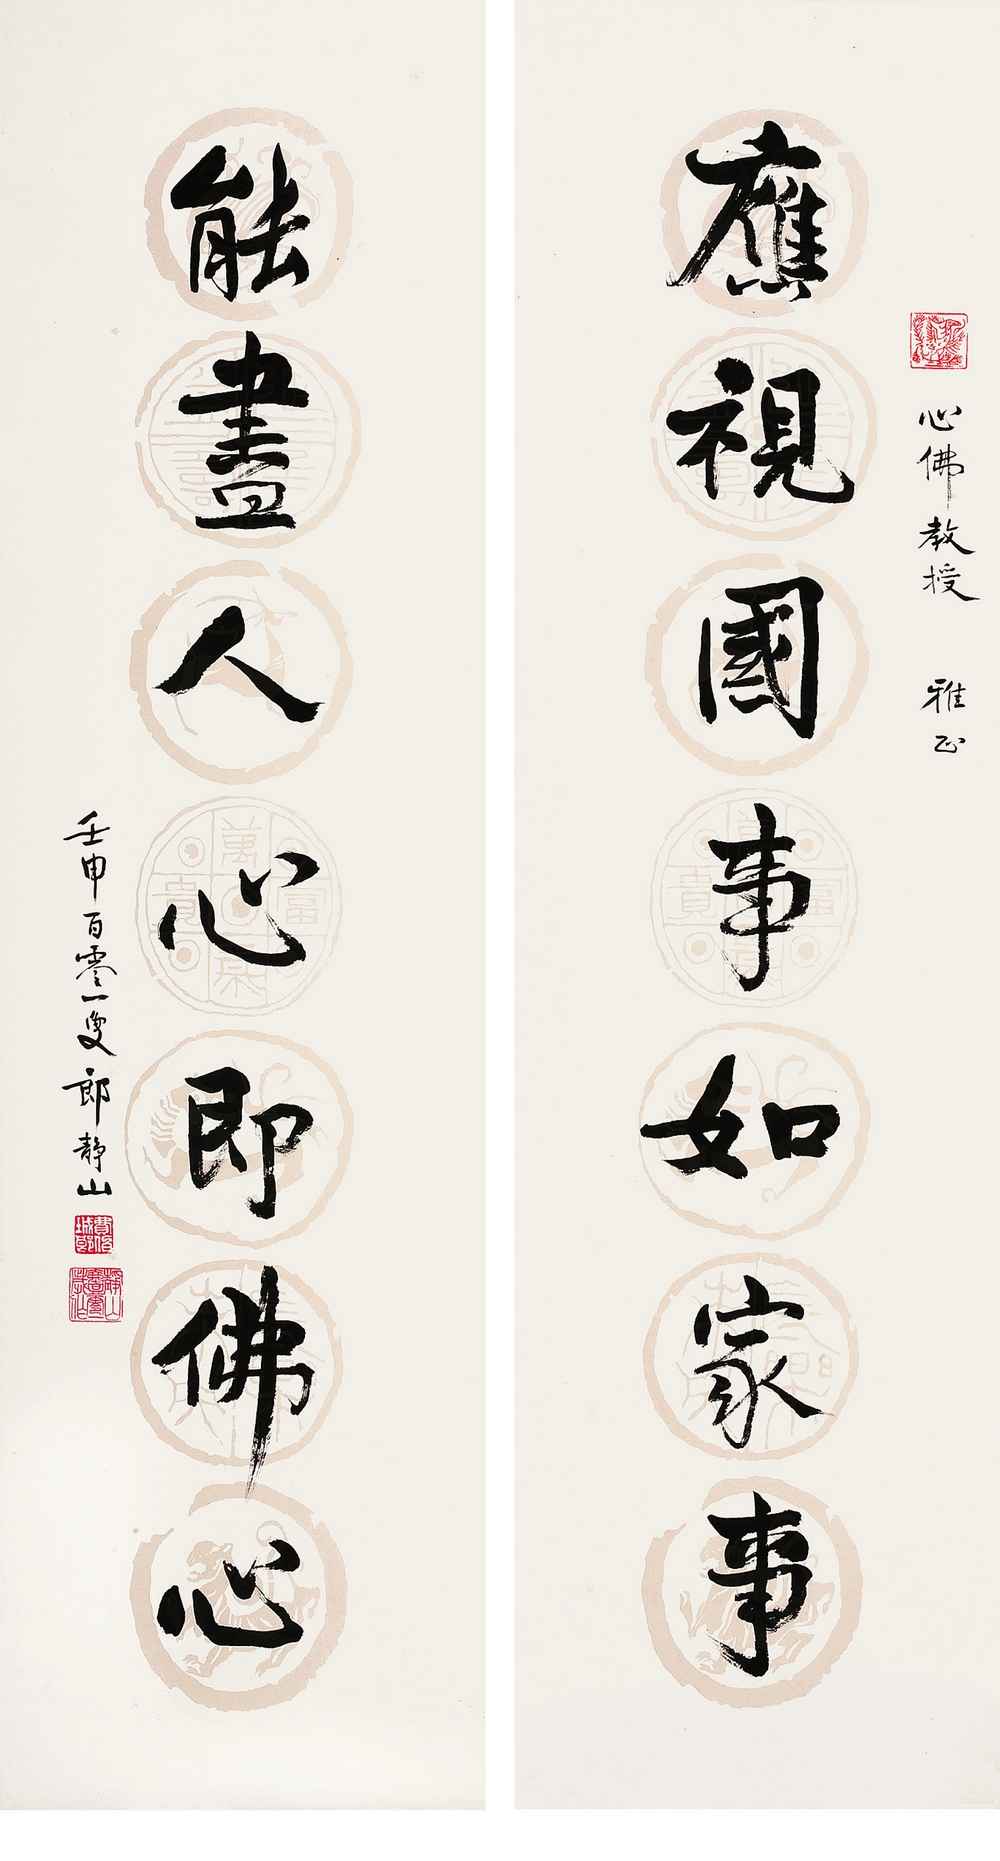 應視國事如家事
心佛教授 雅正
能盡人心即佛心
壬申百零一叟郎靜山